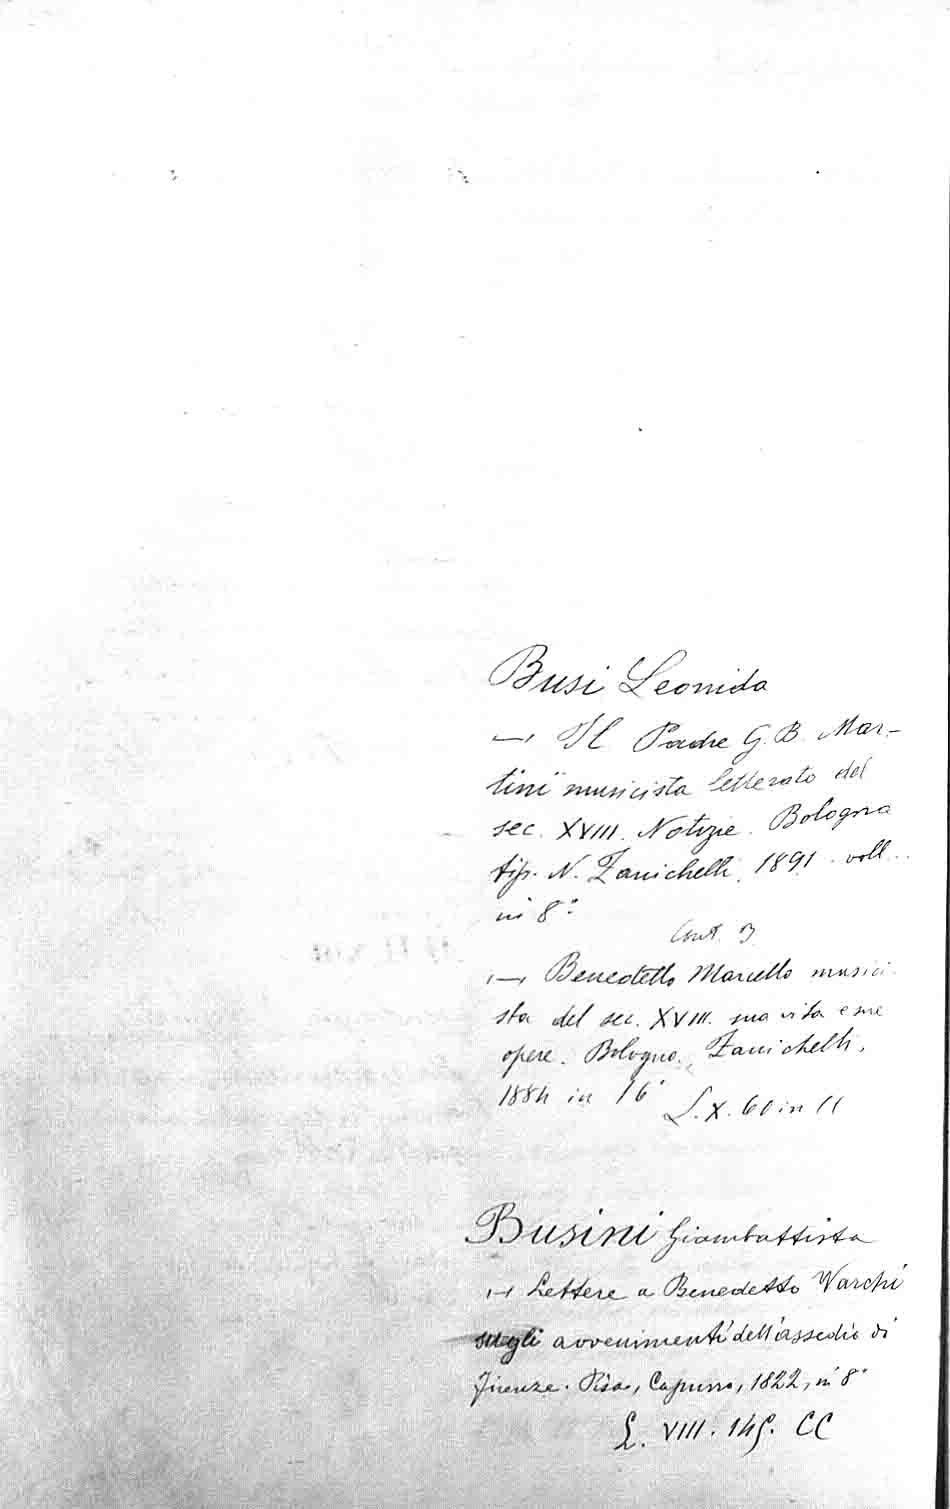 Busi Leonida
— Il Padre G. B. Mar-
tini musicista letterato del
sec. XVIII. Notizie. Bologna
tip. N. Zanichelli, 1891. voll..
in 8°
Cont. 3
— Benedetto Marcello musici
sta del sec. XVIII. sua vita e sue
opere. Bologna. Zanichelli,
1884 in 16°
L. X. 60 in
Busini Giambattista
— Lettere a Benedetto Varchi
sugli avvenimenti dell'assedio di
Firenze. Pisa, Capurro, 1822, in 8°
L. VIII. 145. CC